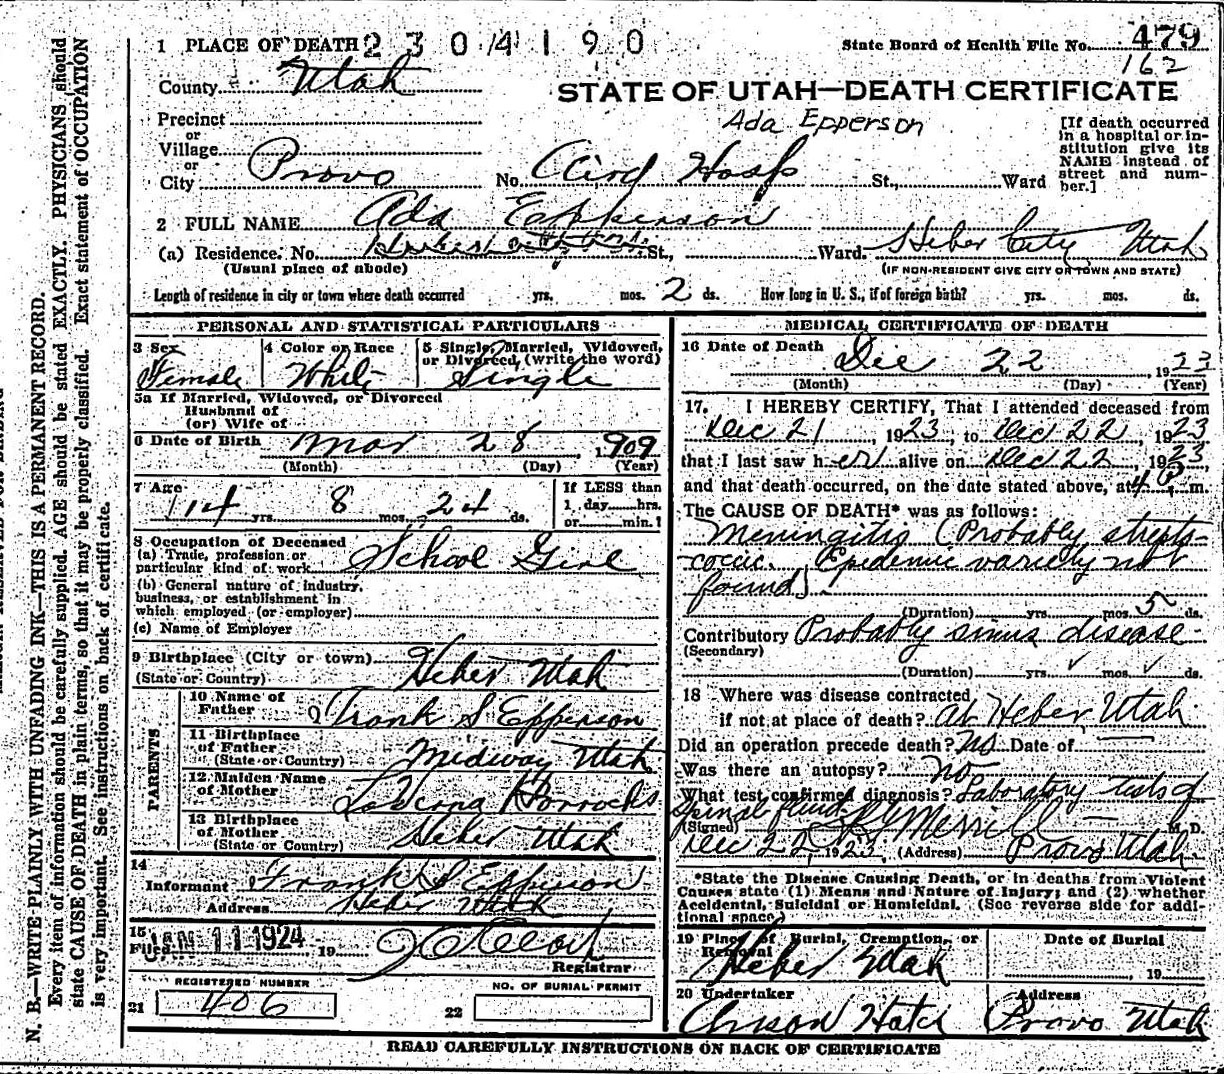 1 PLACE OF DEATH 2 3 0 4 1 9 0
State Board of Health File No. 479
162
County Utah
STATE OF UTAH—DEATH CERTIFICATE
Precinct
or
Village
or
City Provo No. Aird Hosp St., Ward
Ada Epperson
[If death occurred
in a hospital or in-
stitution give its
NAME instead of
street and num-
ber.]
2 FULL NAME Ada Epperson
(a) Residence. No. St., Ward. Heber City Utah
(Usual place of abode)
(IF NON-RESIDENT GIVE CITY OR TOWN AND STATE)
Length of residence in city or town where death occurred yrs. mos. 2 ds. How long in U. S., if of foreign birth? yrs. mos. ds.
PERSONAL AND STATISTICAL PARTICULARS
3 Sex
Female
4 Color or Race
White
5 Single, Married, Widowed,
or Divorced, (write the word)
Single
5a If Married, Widowed, or Divorced
Husband of
(or) Wife of
6 Date of Birth Mar 28, 1909
(Month) (Day) (Year)
7 Age
14 yrs. 8 mos. 24 ds.
If LESS than
1 day hrs.
or min.?
8 Occupation of Deceased
(a) Trade, profession or
particular kind of work School Girl
(b) General nature of industry,
business, or establishment in
which employed (or employer)
(c) Name of Employer
9 Birthplace (City or town) Heber Utah
(State or Country)
PARENTS
10 Name of
Father Frank S Epperson
11 Birthplace
of Father Midway Utah
(State or Country)
12 Maiden Name
of Mother LaVerna Horrocks
13 Birthplace
of Mother Heber Utah
(State or Country)
14
Informant Frank S Epperson
Address Heber Utah
15
Filed JAN 11 1924 19
Registrar
REGISTERED NUMBER
21 406
NO. OF BURIAL PERMIT
22
MEDICAL CERTIFICATE OF DEATH
16 Date of Death Dec 22, 1923
(Month) (Day) (Year)
17. I HEREBY CERTIFY, That I attended deceased from
Dec 21, 1923, to Dec 22, 1923
that I last saw her alive on Dec 22, 1923,
and that death occurred, on the date stated above, at 4 P. m.
The CAUSE OF DEATH* was as follows:
Meningitis (Probably strepto-
coccic. Epidemic variety not
found).
(Duration) yrs. mos. 5 ds.
Contributory Probably sinus disease
(Secondary)
(Duration) yrs. mos. ds.
18 Where was disease contracted
if not at place of death? at Heber Utah
Did an operation precede death? No Date of
Was there an autopsy? no
What test confirmed diagnosis? Laboratory tests of
spinal fluid
(Signed) Merrill M. D.
Dec 22, 1923 (Address) Provo Utah
*State the Disease Causing Death, or in deaths from Violent
Causes state (1) Means and Nature of Injury; and (2) whether
Accidental, Suicidal or Homicidal. (See reverse side for addi-
tional space.)
19 Place of Burial, Cremation, or
Removal Heber Utah
Date of Burial
19
20 Undertaker Address
Hatch Provo Utah
READ CAREFULLY INSTRUCTIONS ON BACK OF CERTIFICATE
N. B.—WRITE PLAINLY WITH UNFADING INK—THIS IS A PERMANENT RECORD.
Every item of information should be carefully supplied. AGE should be stated EXACTLY. PHYSICIANS should
state CAUSE OF DEATH in plain terms, so that it may be properly classified. Exact statement of OCCUPATION
is very important. See instructions on back of certificate.